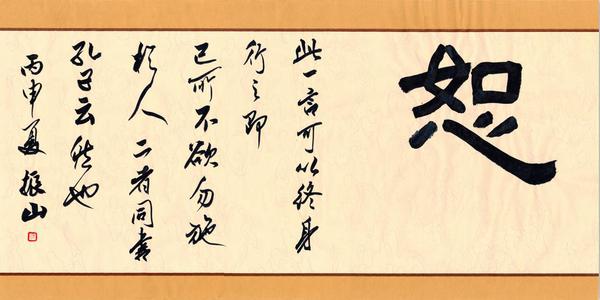 恕
此一言可以终身
行之即
己所不欲勿施
於人 二者同書
孔子云然也
丙申夏 振山